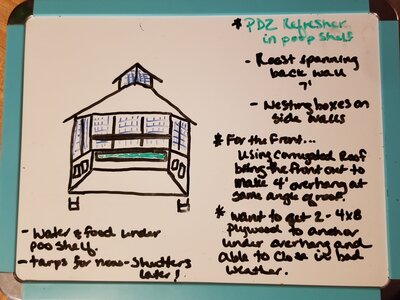 * PDZ Refresher
in poop shelf
- Roost spanning
back wall
7'
- Nesting boxes on
side walls
* For the Front...
Using Corrugated Roof
bring the front out to
make 4' overhang at
same angle of roof.
* want to get 2 - 4x8
plywood to anchor
under overhang and
able to close in bad
weather.
- Water & food under
poo shelf.
- tarps for now - Shutters
later!